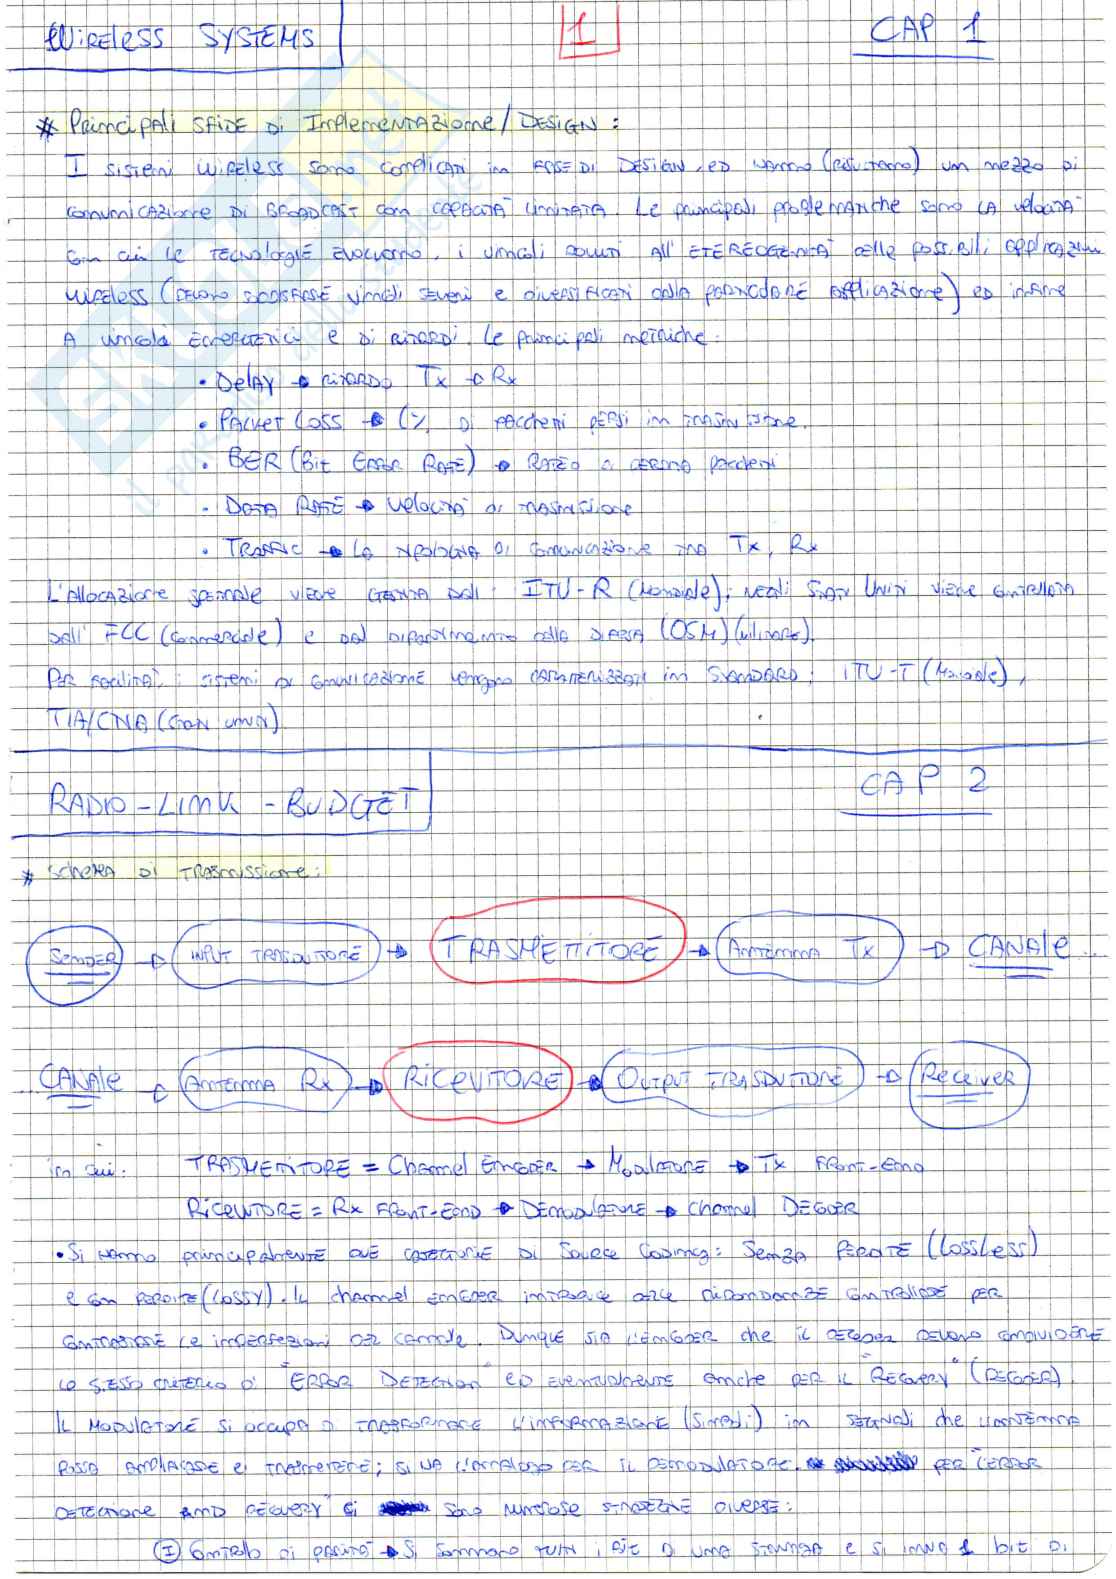 WIRELESS SYSTEMS 1 CAP 1
# Principali SFIDE DI Implementazione/DESIGN:
I sistemi WIRELESS sono complicati in FASE DI DESIGN, ED hanno (risultano) un mezzo di
comunicazione DI BROADCAST con capacità limitata. Le principali problematiche sono la velocità
con cui le tecnologie evolvono, i vincoli dovuti all'ETEROGENEITÀ delle possibili applicazioni
wireless (devono soddisfare vincoli severi e diversificati dalla particolare applicazione) ed infine
A vincoli energetici e di ritardi. Le principali metriche:
• Delay → ritardo Tx → Rx
• Packet Loss → (% di pacchetti persi in trasmissione.
• BER (Bit Error Rate) → Rateo di pacchetti
• Data Rate → velocità di trasmissione
• Traffic → La tipologia di comunicazione tra Tx, Rx
L'Allocazione spettrale viene gestita dall': ITU-R (Mondiale); negli Stati Uniti viene controllata
dall' FCC (commerciale) e dal dipartimento della difesa (OSM) (militare).
Per facilità, i sistemi di comunicazione vengono caratterizzati in STANDARD: ITU-T (Mondiale),
TIA/CNA (Stati Uniti).
RADIO-LINK-BUDGET CAP 2
# Schema di trasmissione:
Sender → INPUT TRASDUTTORE → TRASMETTITORE → Antenna Tx → CANALE...
...CANALE → Antenna Rx → RICEVITORE → OUTPUT TRASDUTTORE → Receiver
in cui: TRASMETTITORE = Channel Encoder → Modulatore → Tx Front-End
RICEVITORE = Rx Front-End → Demodulatore → Channel Decoder
• Si hanno principalmente due categorie di Source Coding: Senza perdite (Lossless)
e con perdite (Lossy). Il channel encoder introduce delle ridondanze controllate per
contrastare le imperfezioni del canale. Dunque sia l'encoder che il decoder devono condividere
lo stesso criterio di "ERROR DETECTION" ed eventualmente anche per il "Recovery" (DECODER).
Il Modulatore si occupa di trasformare l'informazione (simboli) in segnali che l'antenna
possa ampliare e trasmettere; si ha l'analogo per il demodulatore. per l'error
detection and recovery ci sono numerose strategie diverse:
(I) Controllo di parità → Si sommano tutti i bit di una stringa e si invia 1 bit di